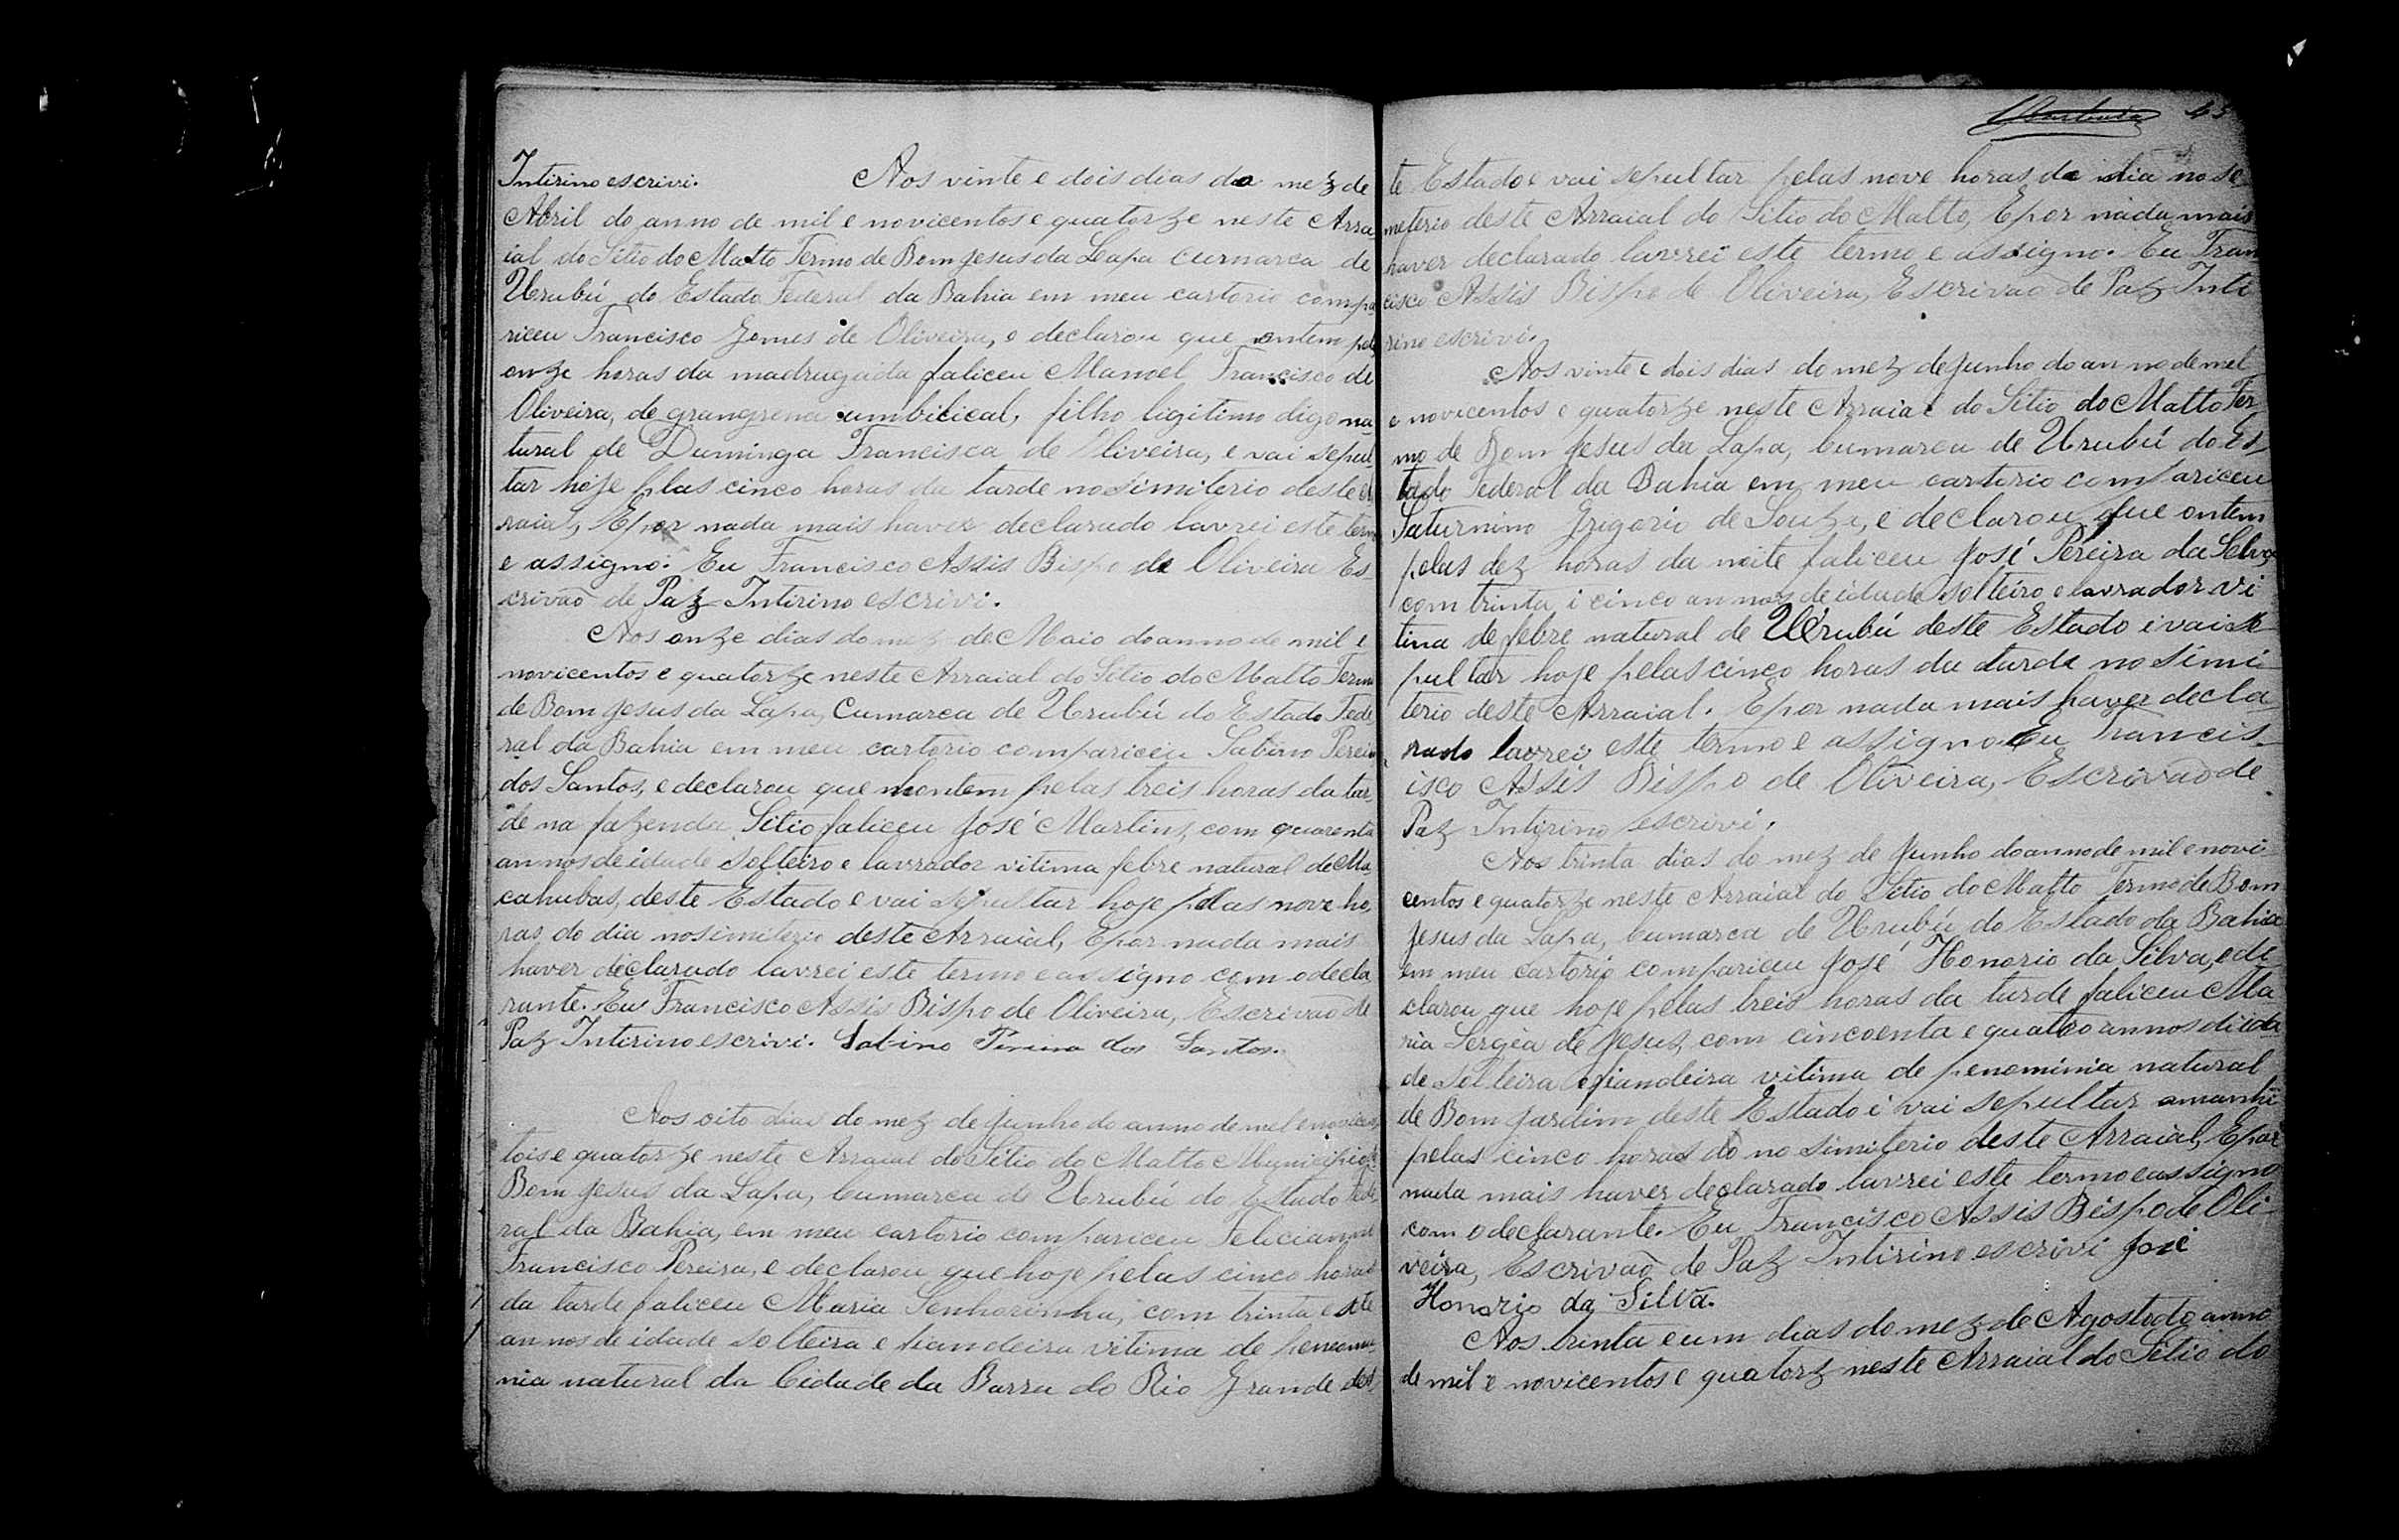 Intirino escrivi. Aos vinte e dois dias do mez de
Abril do anno de mil e novicentos e quatorze neste Arra-
ial do Sitio do Matto Termo de Bom Jesus da Leapa cumarca de
Urubú do Estado Federal da Bahia em meu cartorio compa-
riceu Francisco Gomes de Oliveira, e declarou que ontem pelas
onze horas da madrugada faliceu Manoel Francisco de
Oliveira, de grangrena umbilical, filho ligitimo digo na-
tural de Duminga Francisca de Oliveira, e vai sepul-
tar hoje plas cinco horas da tarde no simiterio deste Ar-
raial, E por nada mais haver declarado lavrei este termo
e assigno. Eu Francisco Assis Bispo de Oliveira Es-
crivão de Paz Intirino escrivi.
Aos onze dias do mez de Maio do anno de mil e
novicentos e quatorze neste Arraial do Sitio do Matto Termo
de Bom Jesus da Lapa, Cumarca de Urubú do Estado Fede
ral da Bahia em meu cartorio compariceu Sabino Pereira
dos Santos, e declarou que hontem pelas treis horas da tar-
de na fazenda Sitio faliceu José Martins, com quarenta
annos de idade solteiro e lavrador vitima febre natural de Ma
cahubas, deste Estado e vai sepultar hoje pelas nove ho-
ras do dia no simiterio deste Arraial, E por nada mais
haver declarado lavrei este termo e assigno com o decla
rante. Eu Francisco Assis Bispo de Oliveira, Escrivão de
Paz Intirino escrivi. Sabino Pereira dos Santos.
Aos oito dias do mez de Junho do anno de mil e novicen
tois e quatorze neste Arraial do Sitio do Matto Municipio de
Bom Jesus da Lapa, Cumarca de Urubú do Estado Fede
ral da Bahia, em meu cartorio compariceu Felicianno
Francisco Pereira, e declarou que hoje pelas cinco horas
da tarde faliceu Maria Senhorinha, com trinta e sete
annos de idade solteira e fiandeira vitima de peneomo-
nia natural da Cidade da Barra do Rio Grande des
45
te Estado e vai sepultar pelas nove horas do dia no se-
meterio deste Arraial do Sitio do Matto, E por nada mais
haver declarado lavrei este termo e assigno. Eu Fran
cisco Assis Bispo de Oliveira, Escrivão de Paz Inti
rino escrivi.
Aos vinte e dois dias do mez de Junho do anno de mel
e novicentos e quatorze neste Arraial do Sitio do Matto Ter-
mo de Bom Jesus da Lapa, Cumarca de Urubú do Es-
tado Federal da Bahia em meu cartorio compariceu
Saturnino Grigorio de Souza, e declarou que ontem
pelas dez horas da noite faliceu José Pereira da Selva
com trinta i cinco annos de idade solteiro e lavrador vi
tima de febre natural de Urubú deste Estado i vai se-
pultar hoje pelas cinco horas da tarde no simi-
terio deste Arraial. E por nada mais haver decla-
rado lavrei este termo e assigno. Eu Francis-
isco Assis Bispo de Oliveira, Escrivão de
Paz Intirino escrivi.
Aos trinta dias do mez de Junho do anno de mil e novi-
centos e quatorze neste Arraial do Sitio do Matto Termo de Bom
Jesus da Lapa, Cumarca de Urubú do Estado da Bahia
em meu cartorio compariceu José Honorio da Silva, e de
clarou que hoje pelas treis horas da tarde faliceu Ma
ria Sergia de Jesus, com cincoenta e quatro annos di ida
de Solteira e fiandeira vitima de penominia natural
de Bom Jardim deste Estado i vai sepultar amanhi
pelas cinco horas do no simiterio deste Arraial, E por
nada mais haver declarado lavrei este termo e assigno
com o declarante. Eu Francisco Assis Bispo de Oli-
veira, Escrivão de Paz Intirino escrivi José
Honorio da Silva.
Aos trinta e um dias do mez de Agosto do anno
de mil e novicentos e quatorz neste Arraial do Sitio do